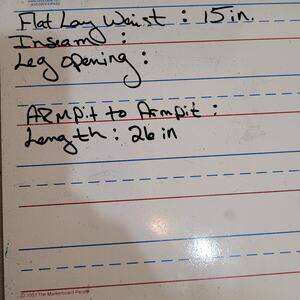 Flat Lay Waist : 15in.
Inseam :
Leg opening :
Armpit to Armpit :
Length : 26 in
© 2007 The Markerboard People